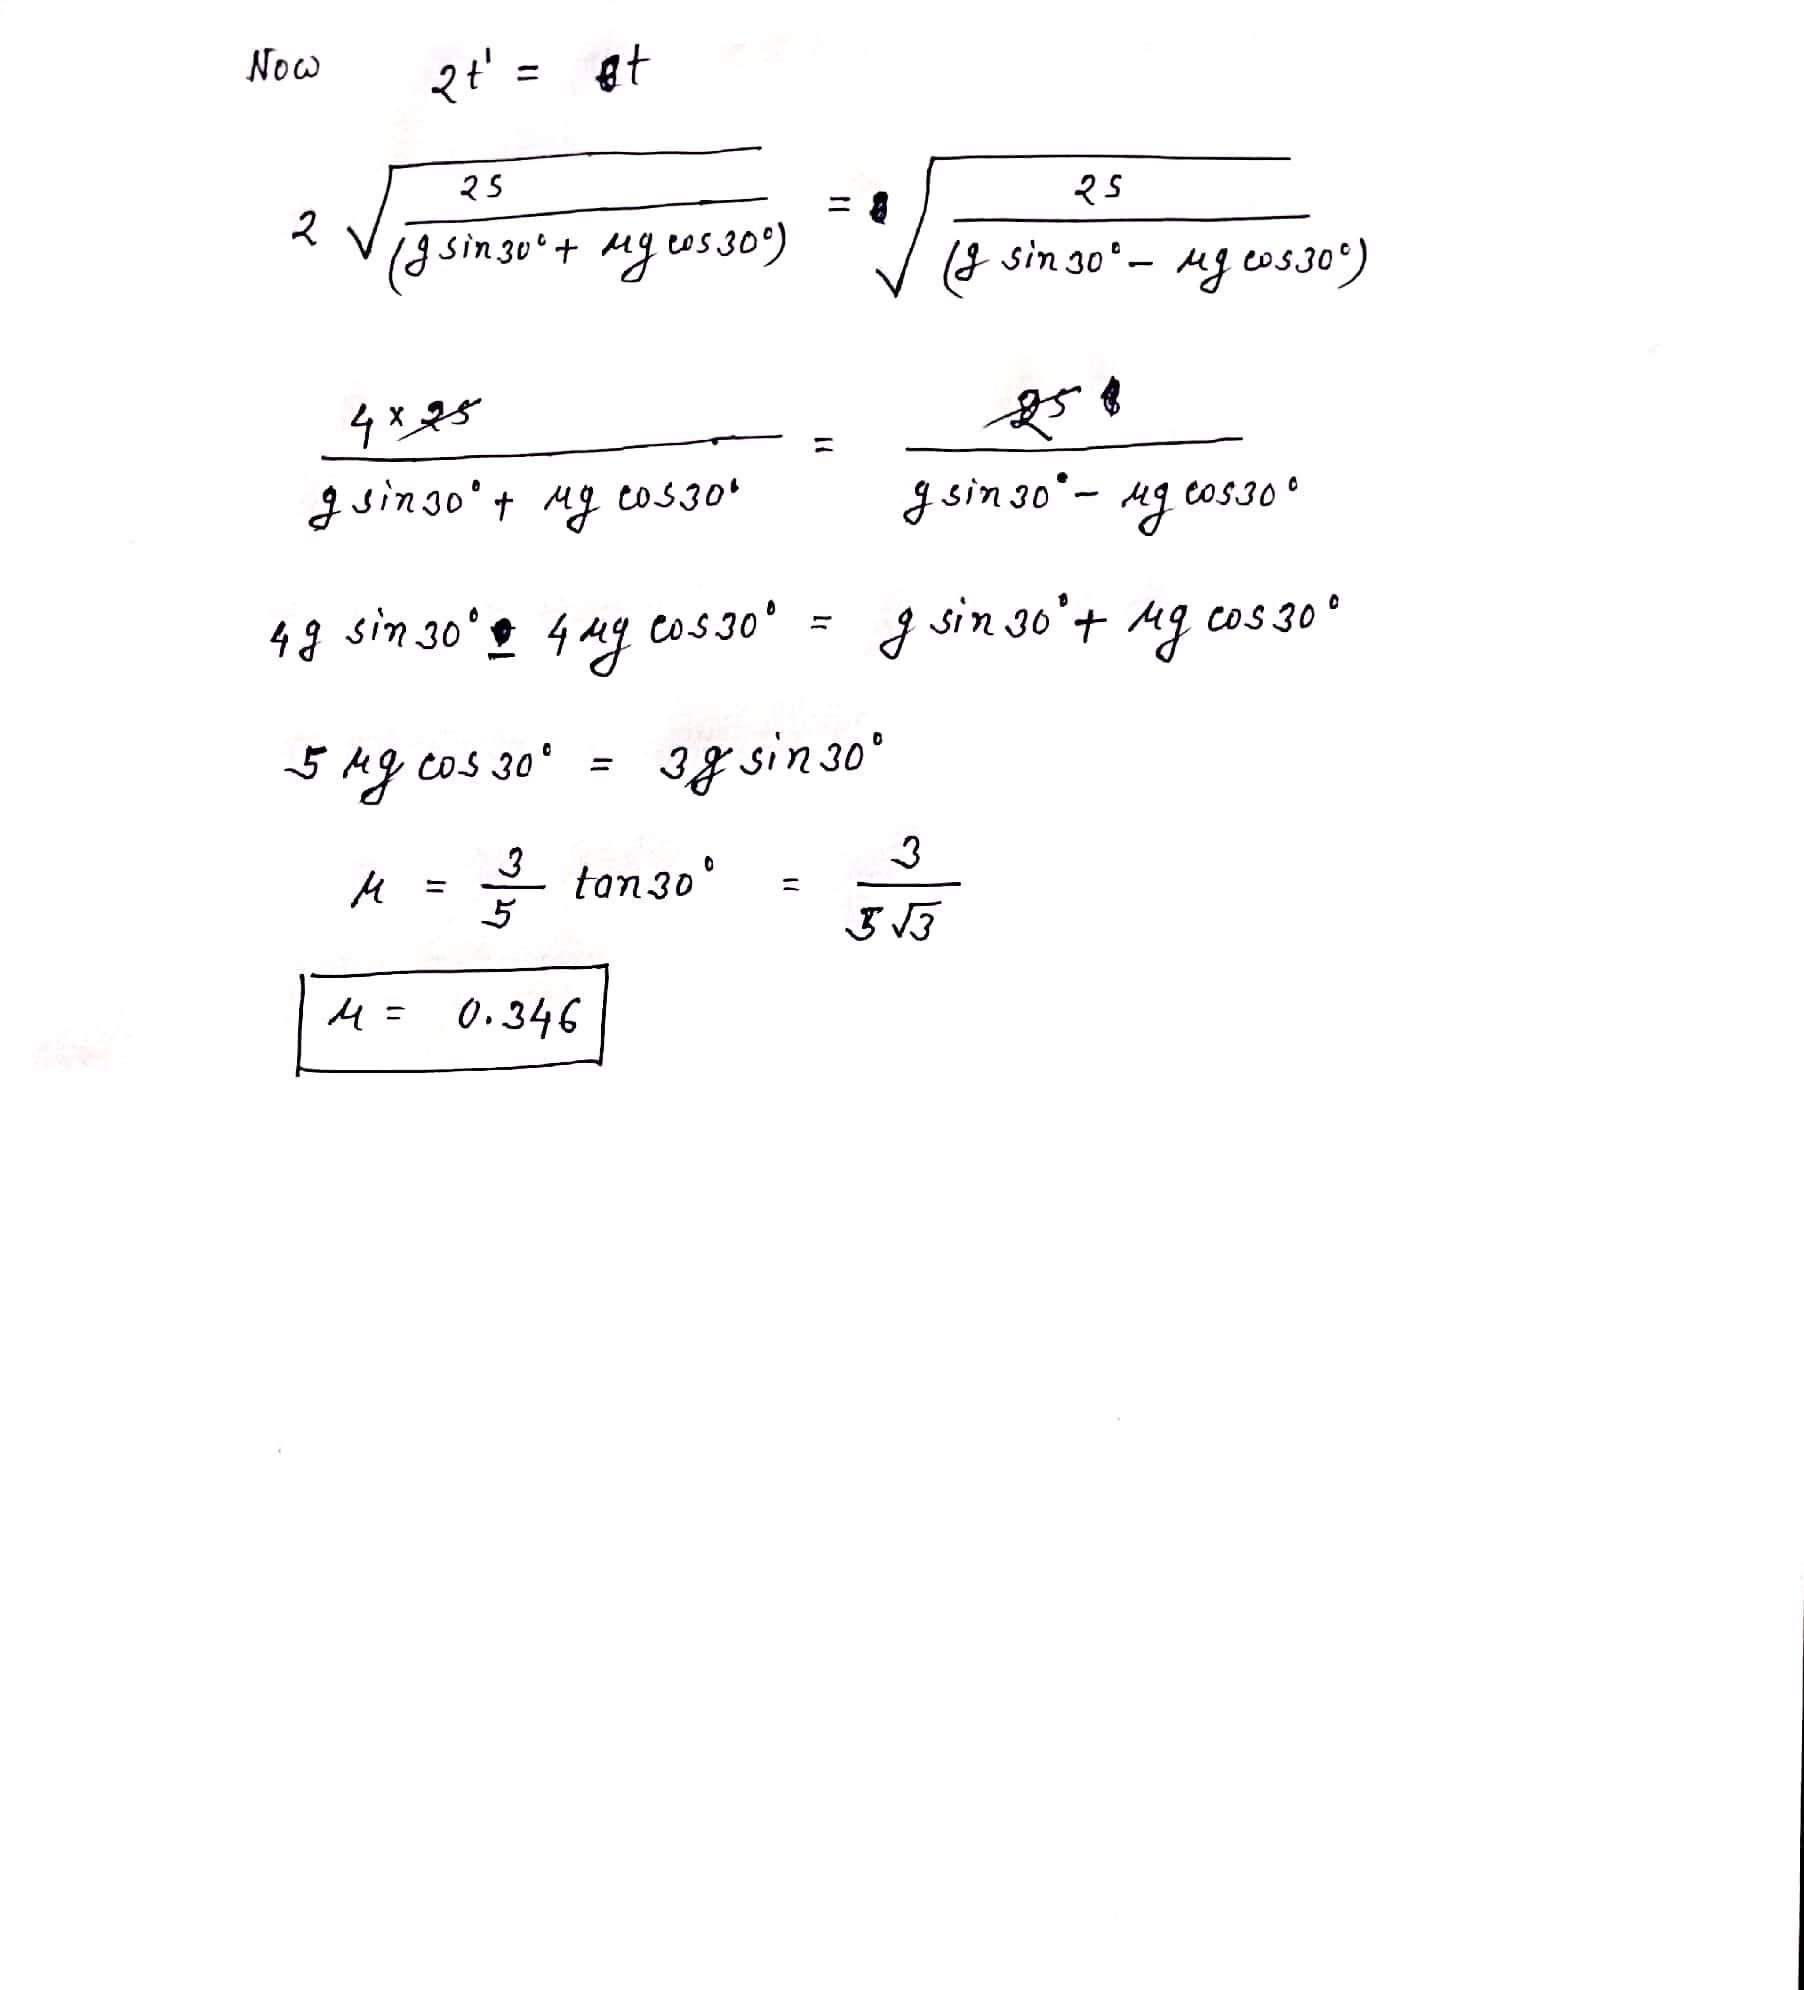 Now 2t' = t
2 √(2s / (g sin30° + μg cos30°)) = √(2s / (g sin30° − μg cos30°))
4 × 2s / (g sin30° + μg cos30°) = 2s / (g sin30° − μg cos30°)
4g sin30° − 4μg cos30° = g sin30° + μg cos30°
5 μg cos30° = 3g sin30°
μ = 3/5 tan30° = 3/(5√3)
μ = 0.346